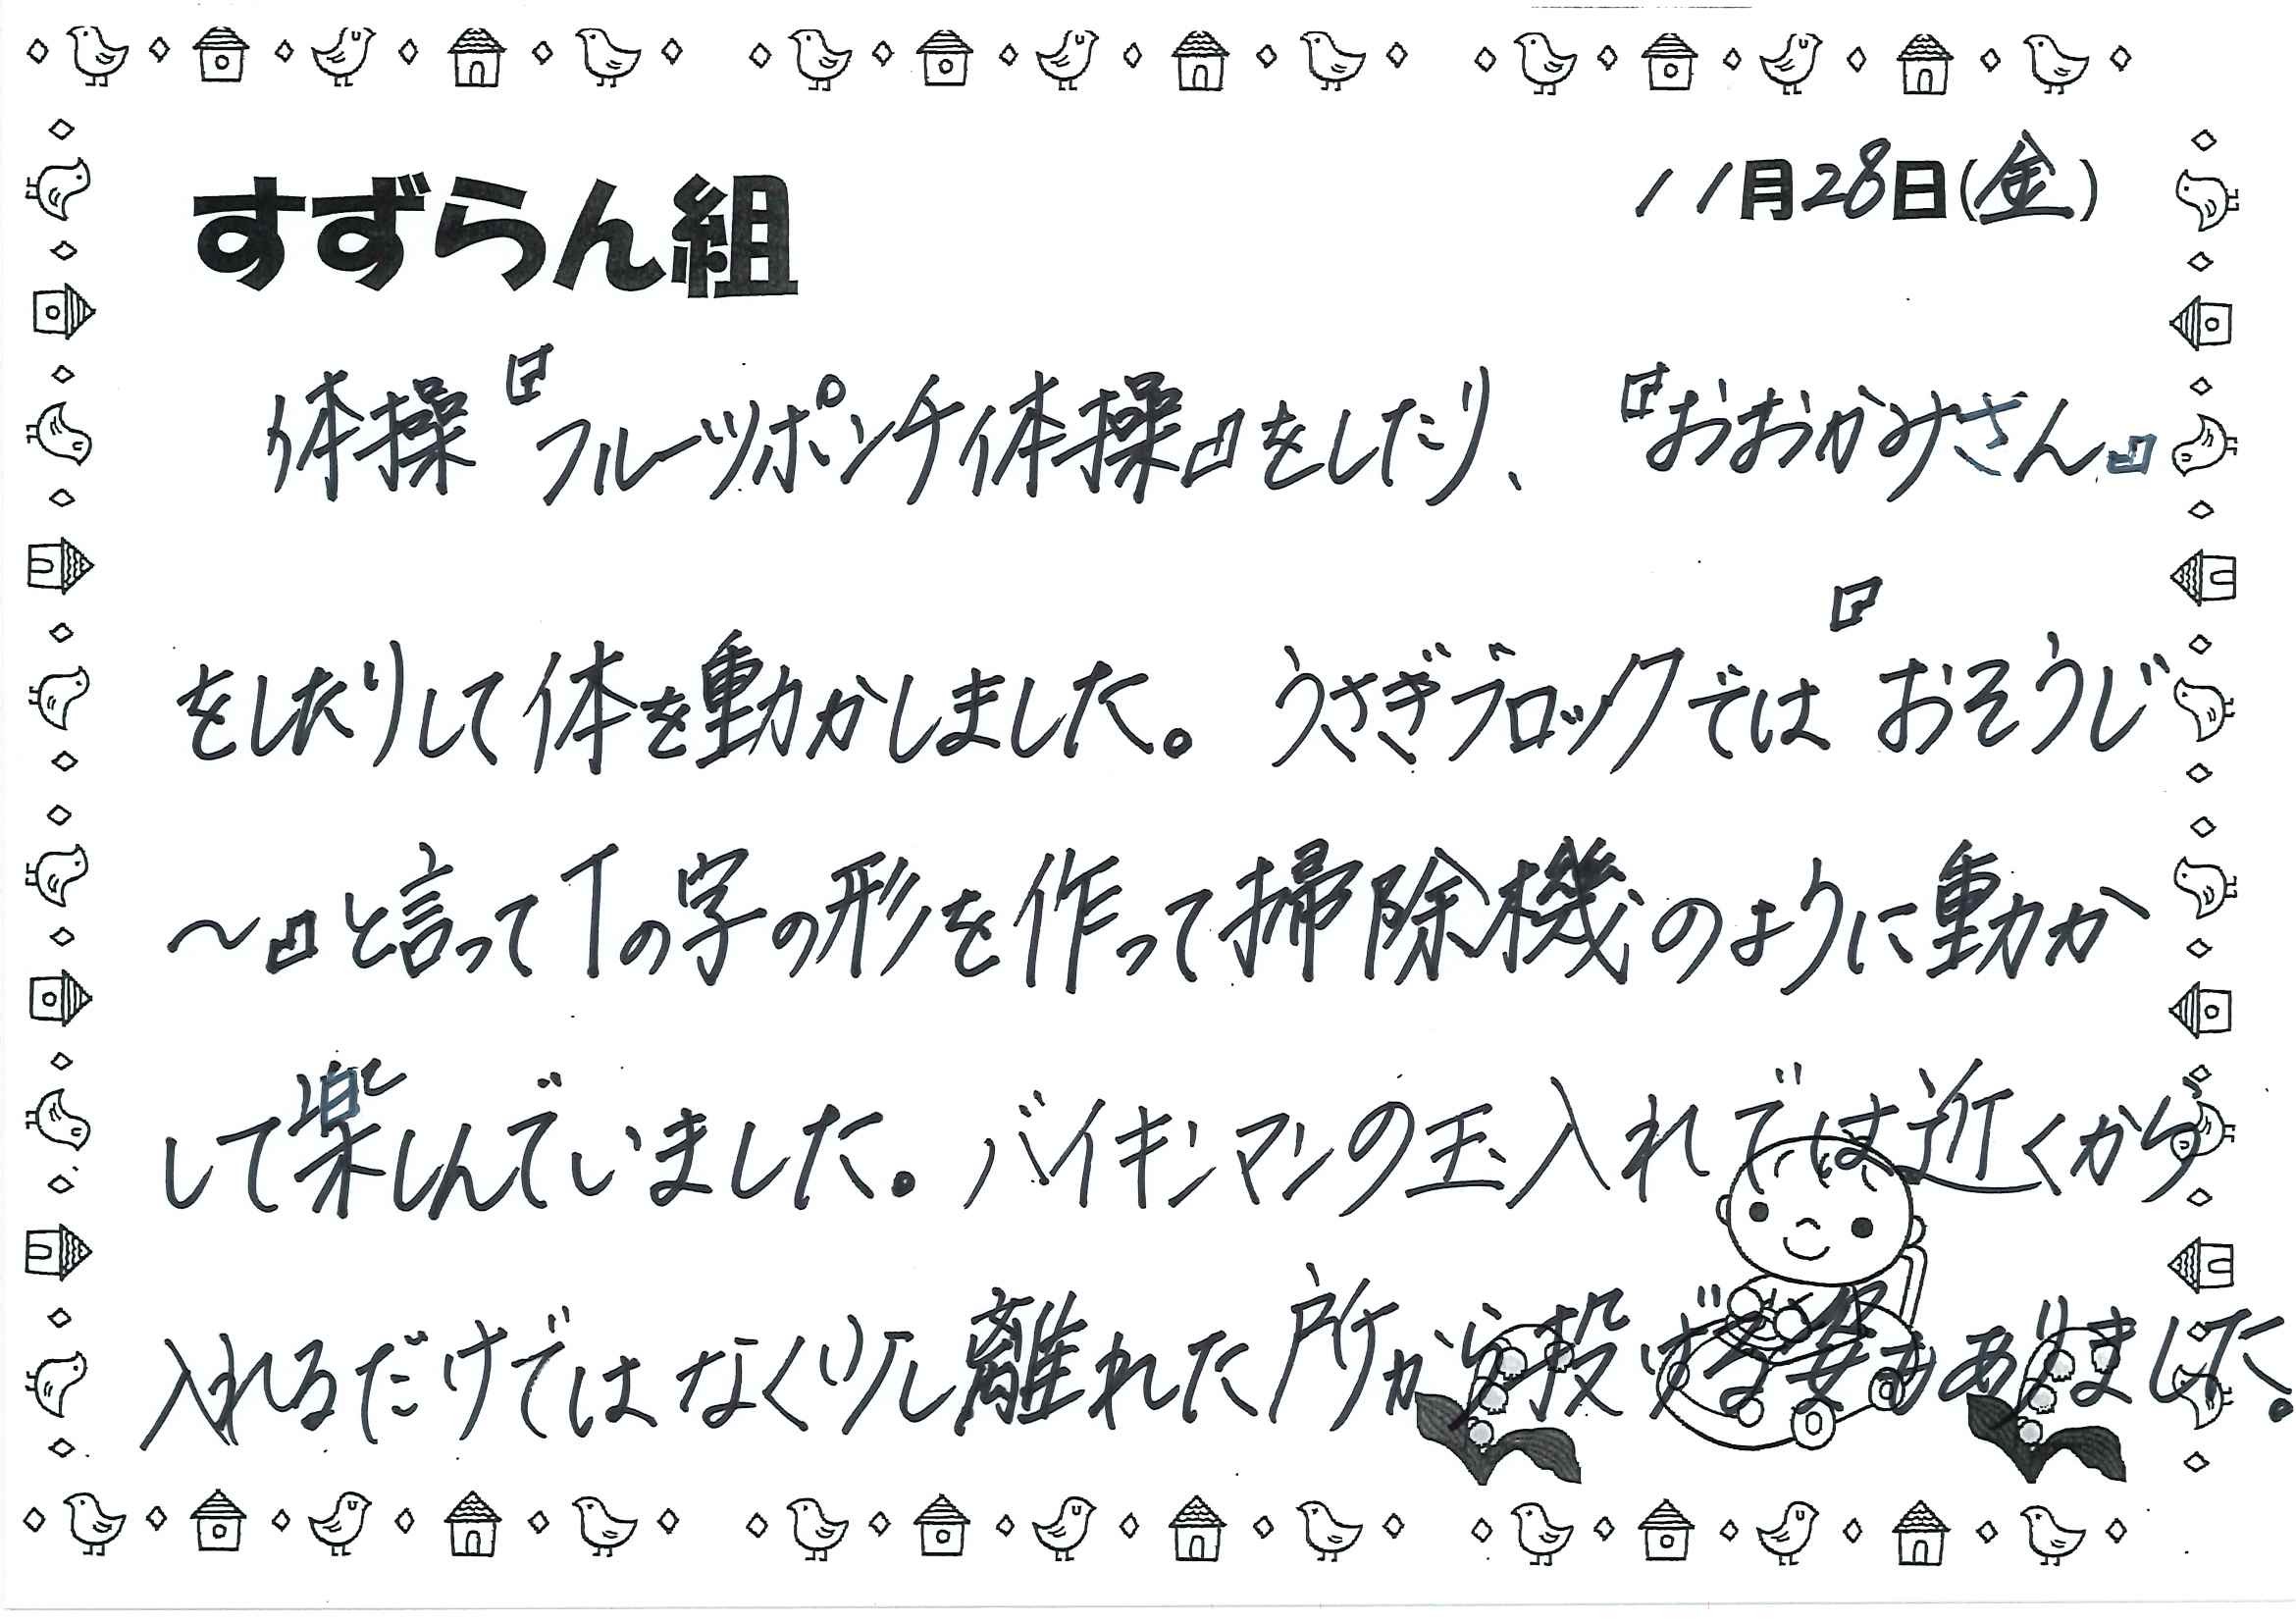 すずらん組
11月28日(金)
体操『フルーツポンチ体操』をしたり、『おおかみさん』
をしたりして体を動かしました。うさぎブロックでは『おそうじ
～』と言ってTの字の形を作って掃除機のように動か
して楽しんでいました。バイキンマンの玉入れでは近くから
入れるだけではなく少し離れた所から投げる姿もありました。